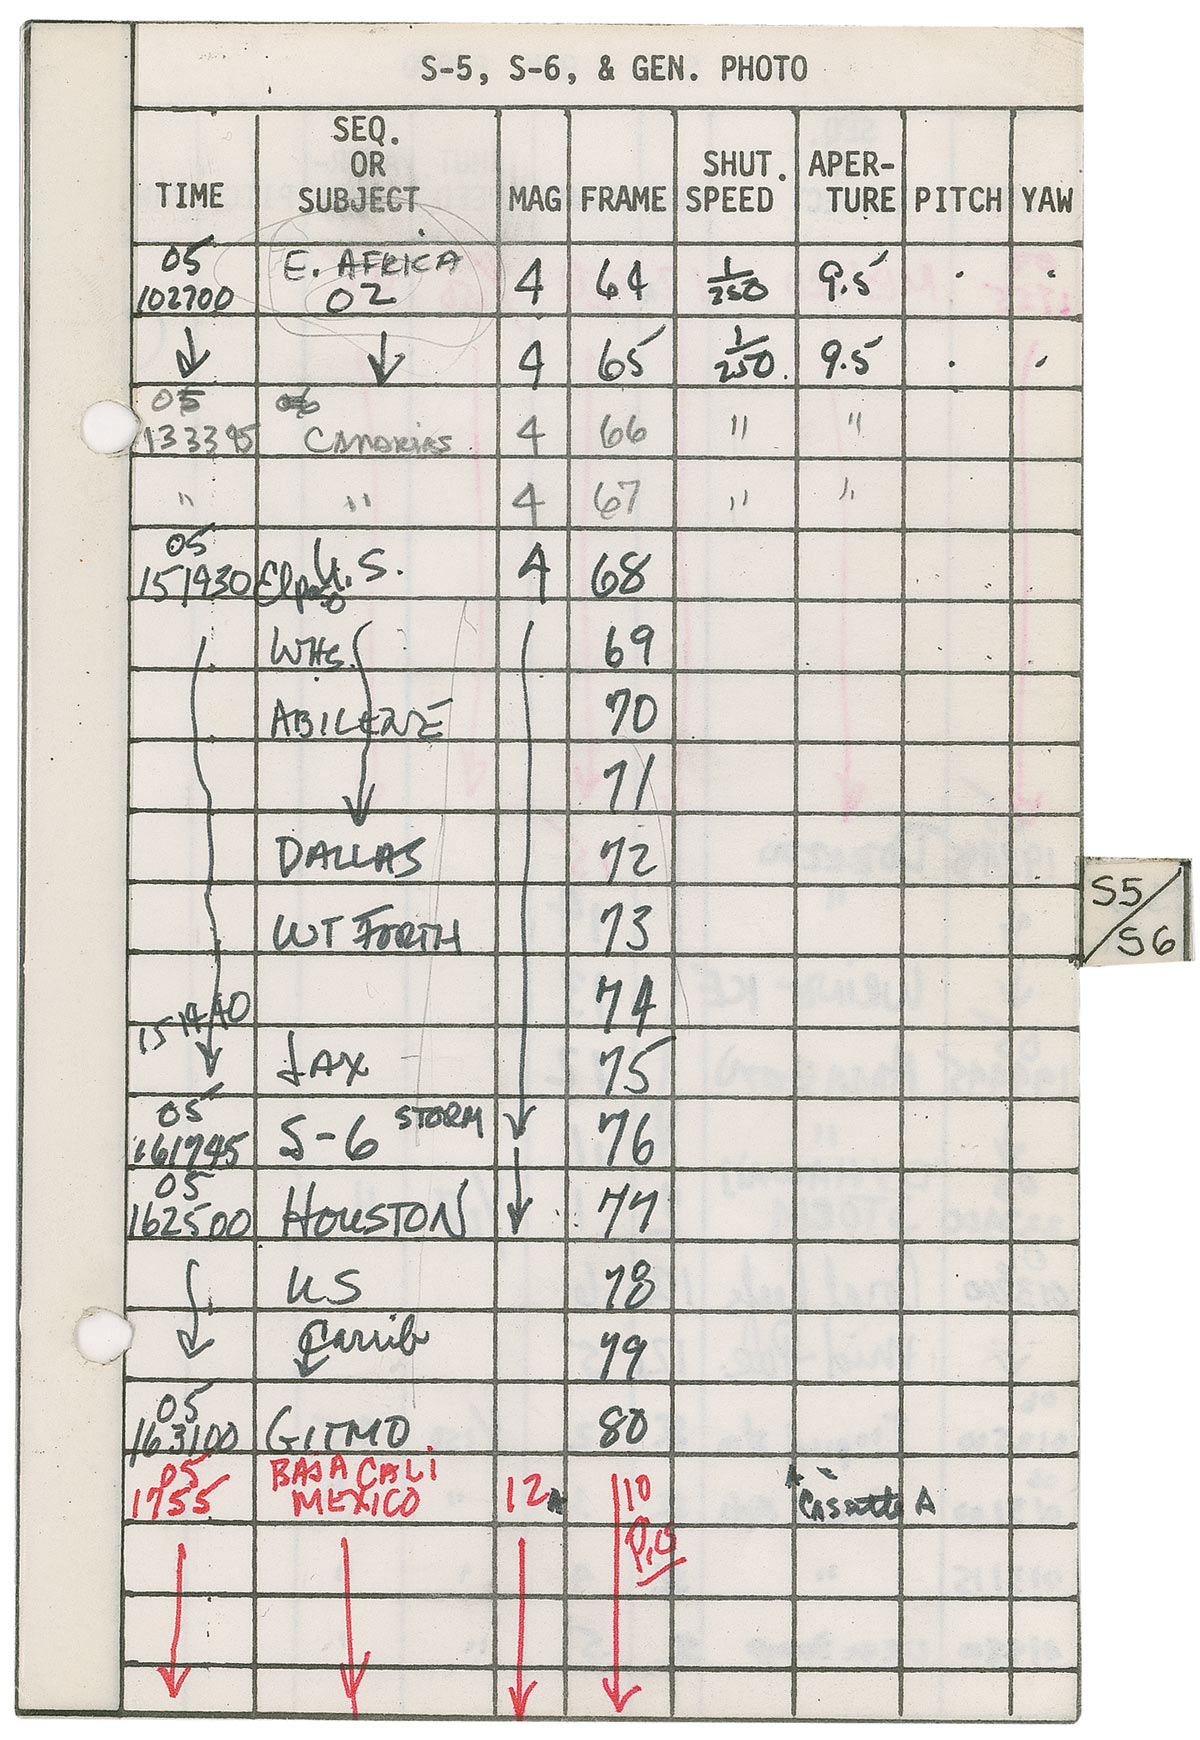 S-5, S-6, & GEN. PHOTO
TIME SEQ. OR SUBJECT MAG FRAME SHUT. SPEED APER-TURE PITCH YAW
05 102700 E. AFRICA 02 4 64 1/250 9.5 . .
4 65 1/250 9.5 . .
05 133345 CANARIES 4 66 " "
" " 4 67 " "
05 151930 Elpaso U.S. 4 68
WHS. 69
ABILENE 70
71
DALLAS 72
WT FORTH 73
74
151940
JAX 75
05 161745 S-6 STORM 76
05 162500 HOUSTON 77
US 78
Carrib 79
05 163100 GITMO 80
05 1755 BAJA CALI MEXICO 12A 110 Cassette A
S5/S6